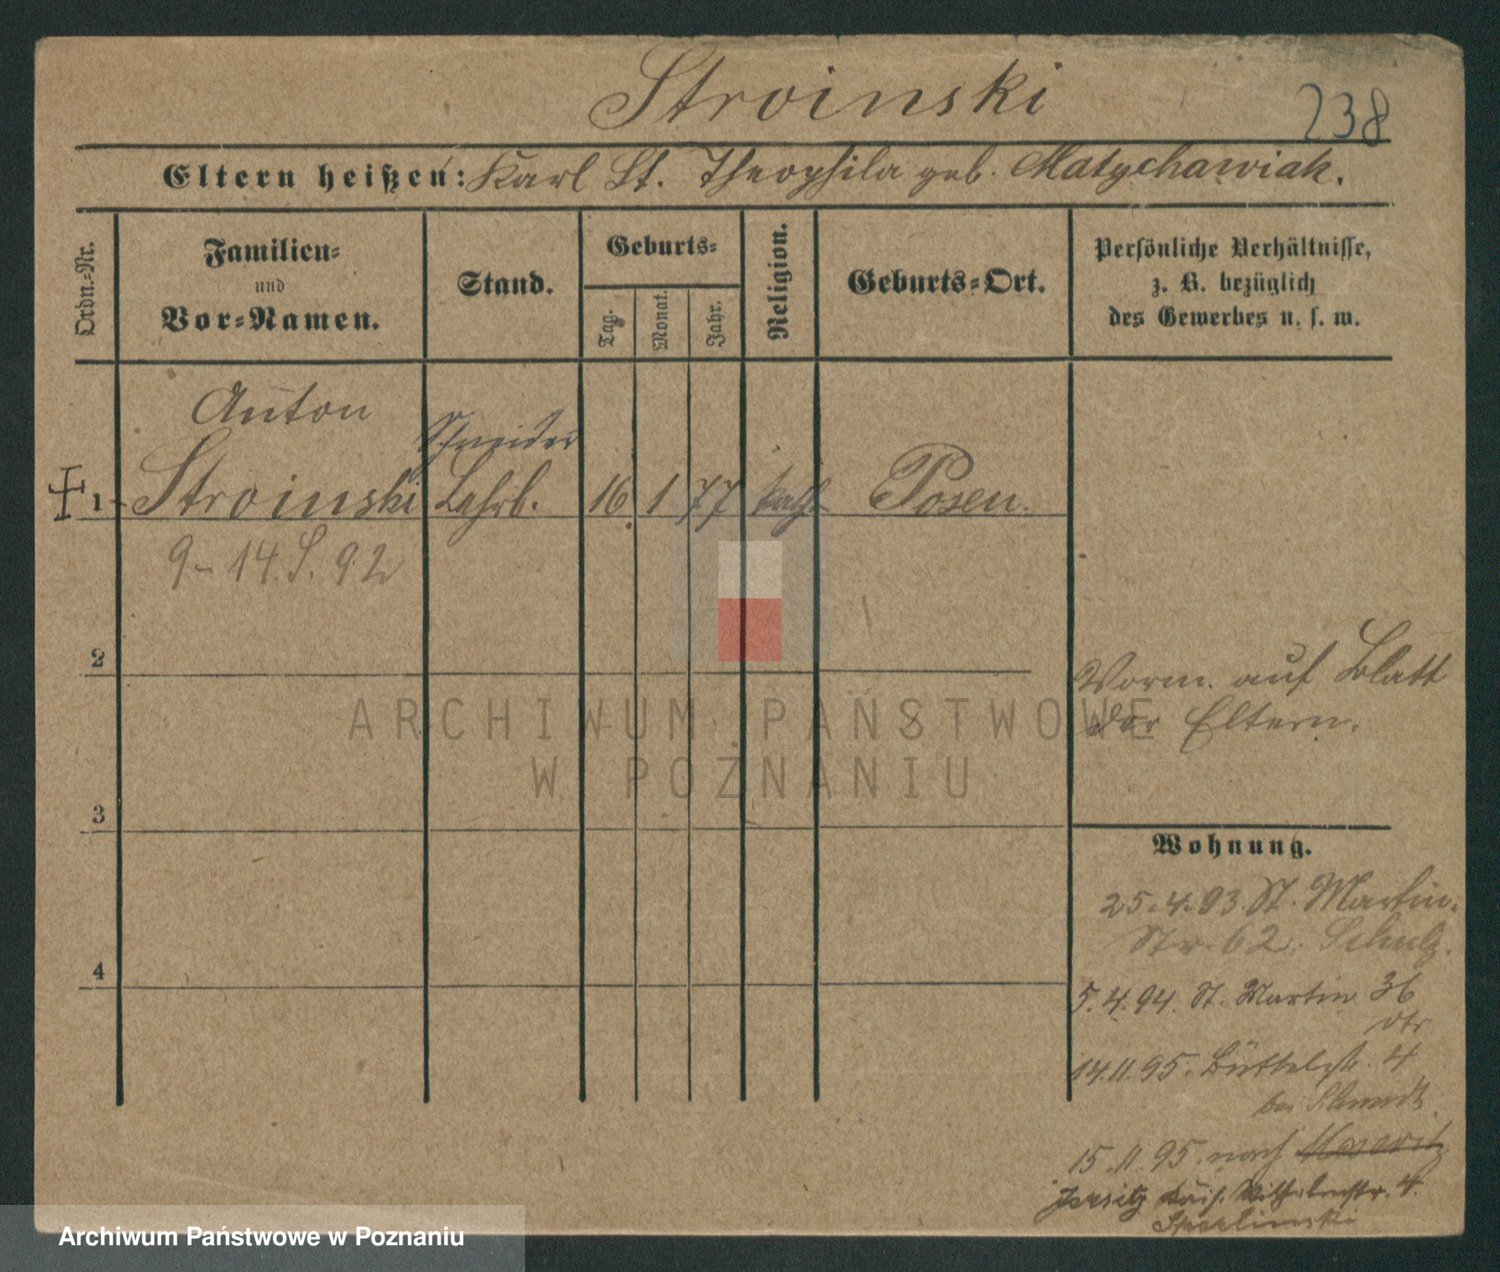 Stroinski
238
Eltern heißen: Karl St. Theophila geb. Matychawiak.
Ordn.-Nr.
Familien-
und
Vor-Namen.
Stand.
Geburts-
Tag.
Monat.
Jahr.
Religion.
Geburts-Ort.
Persönliche Verhältnisse,
z. B. bezüglich
des Gewerbes u. s. w.
Anton
Schneider
1 Stroinski Lehrl. 16 1 77 kath Posen.
9-14. S. 92
2
Vorm. auf Blatt
der Eltern.
3
Wohnung.
25.4.93. St. Martin-
Str. 62. Schulz.
4
5.4.94. St. Martin 36
dtr
14.11.95. Büttelstr. 4
bei
15.11.95. nach
Jersitz Kais. Wilhelmstr. 4.
ARCHIWUM PAŃSTWOWE
W POZNANIU
Archiwum Państwowe w Poznaniu